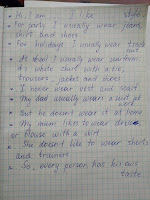 Hi, I am   I like   style
For party I usually wear
shirt and shorts.
For holidays I usually wear
At school I usually wear uniform
It's white shirt with a tie,
trousers, jacket and shoes
I never wear vest and scarf
My dad usually wear a suit at
work
But he doesn't wear it at home
My mum likes to wear dress
or blouse with a skirt
She doesn't like to wear shorts
and trainers
So, every person has his own
taste